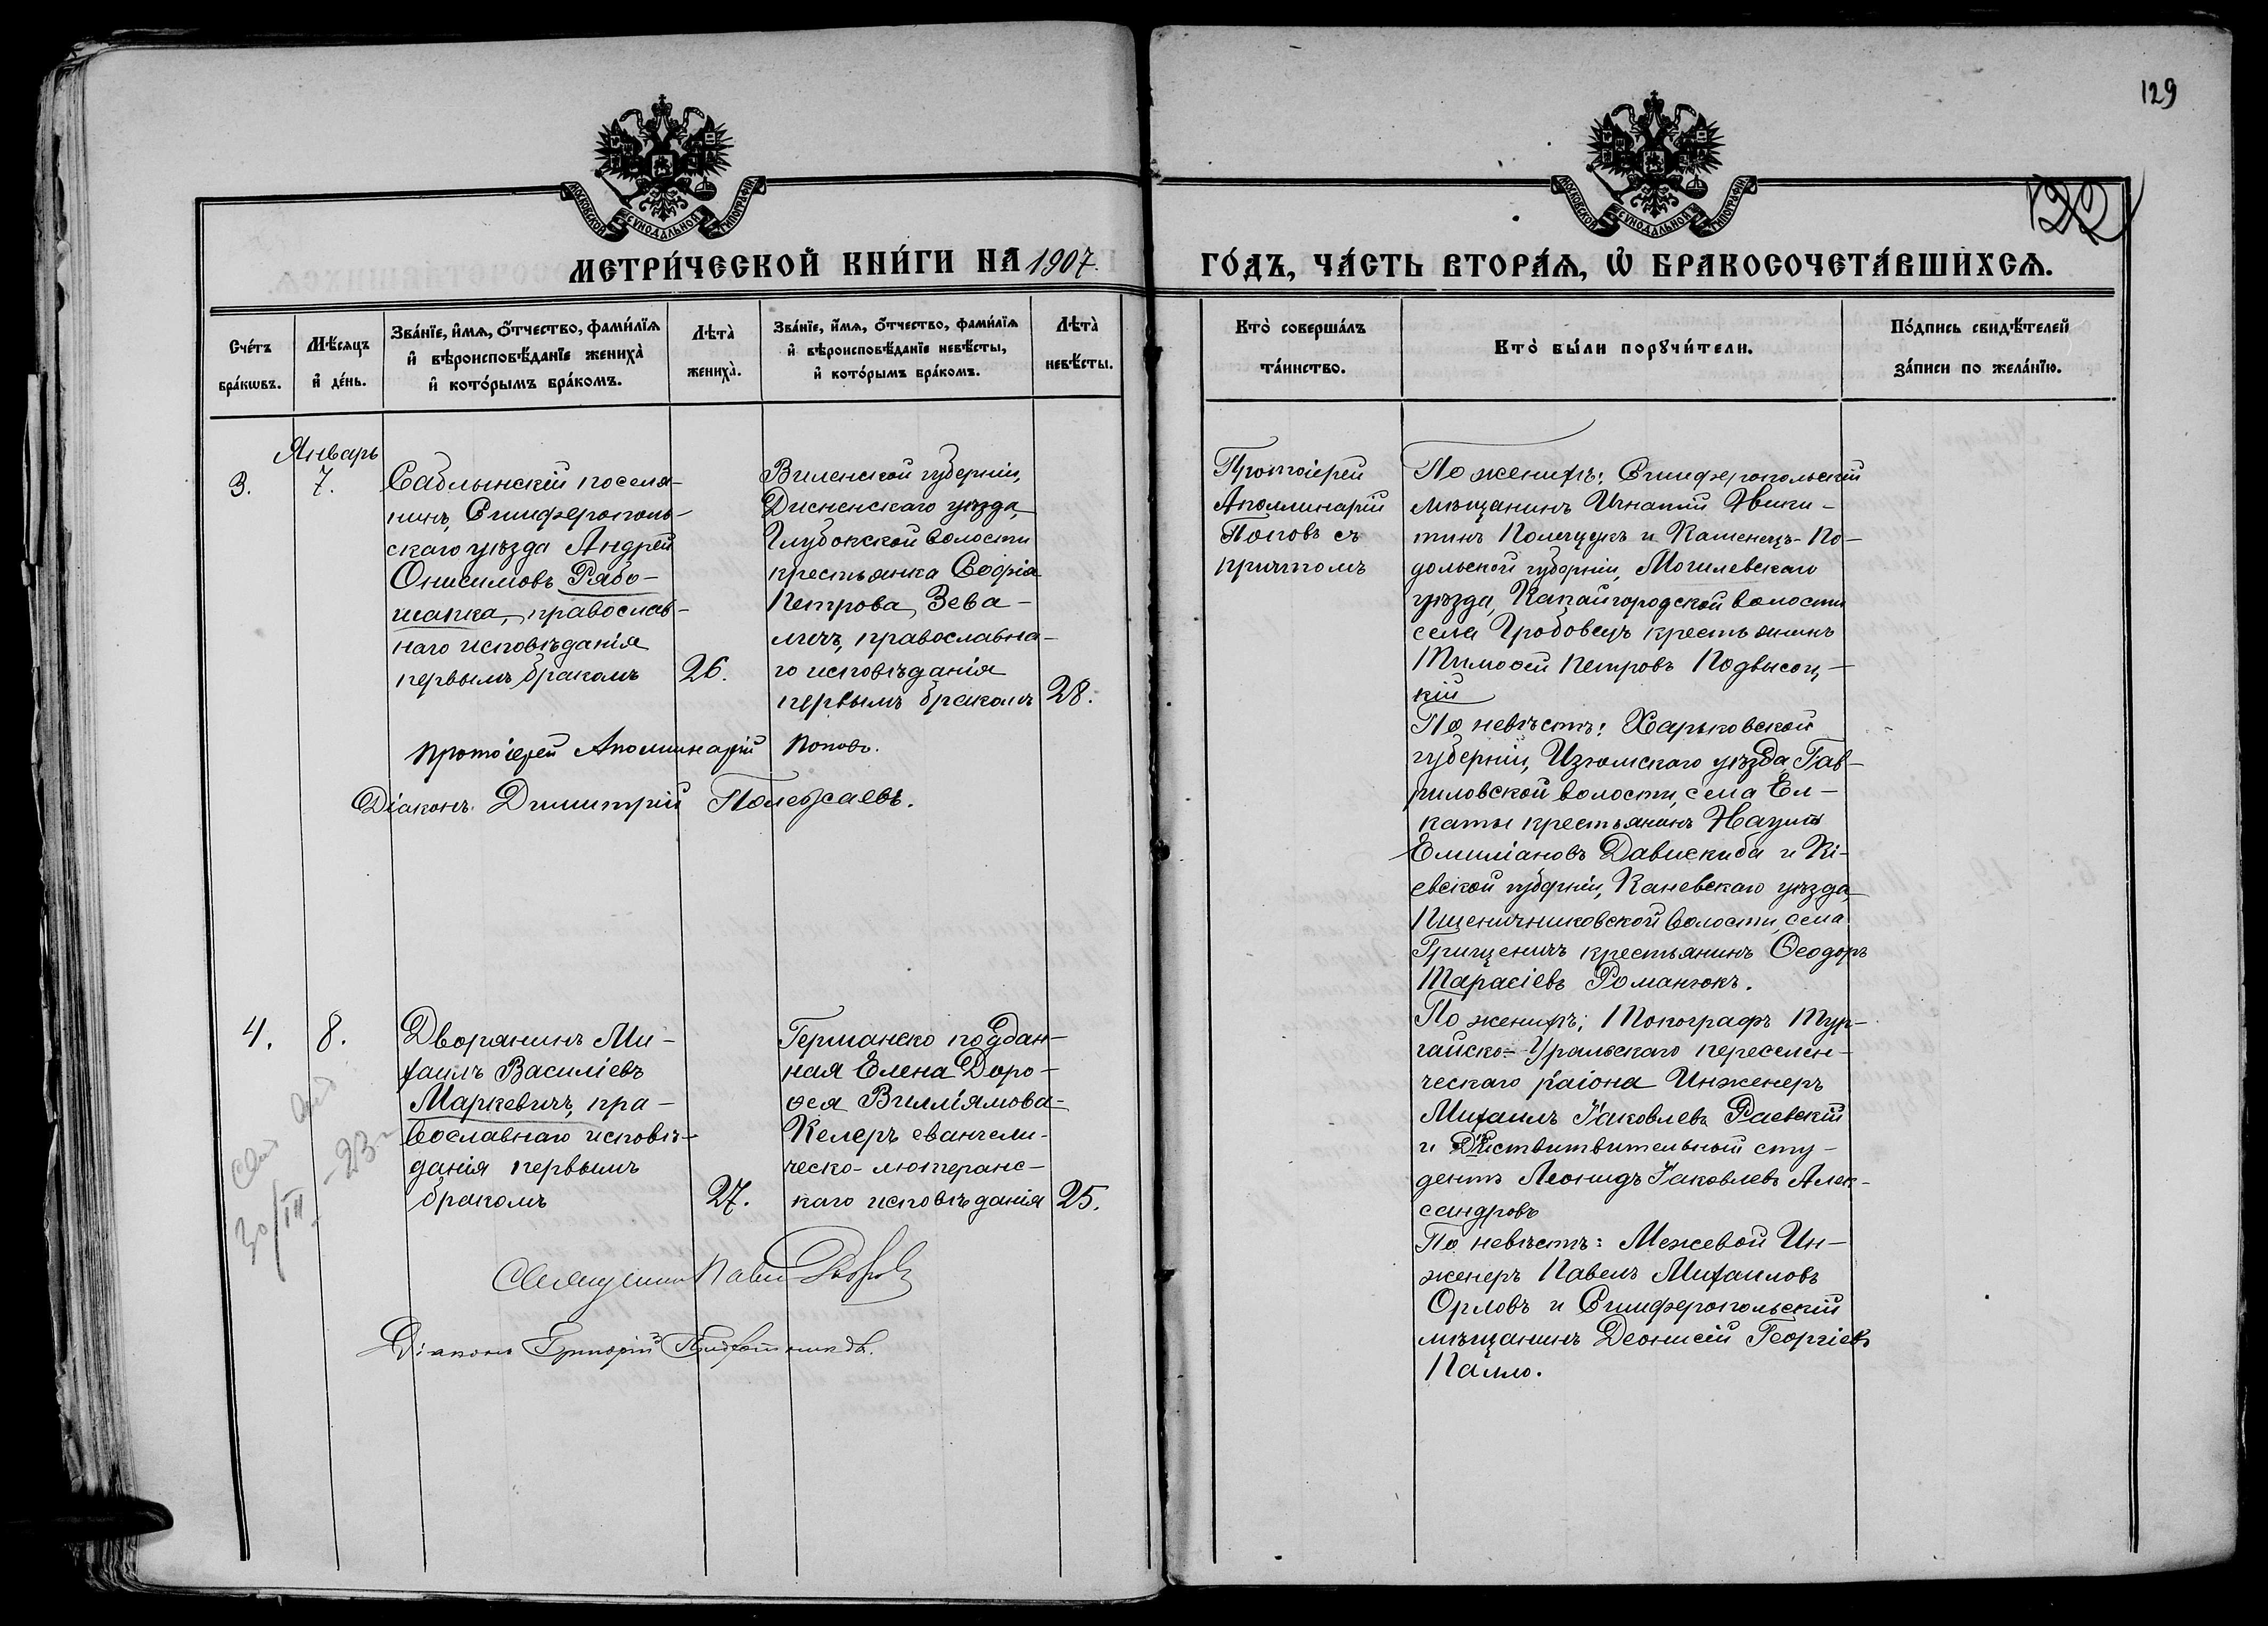 129
122
МОСКОВСКОЙ СѴНОДАЛЬНОЙ ТИПОГРАФІИ
МОСКОВСКОЙ СѴНОДАЛЬНОЙ ТИПОГРАФІИ
МЕТРИ́ЧЕСКОЙ КНИ́ГИ НА 1907.
ГО́ДЪ, ЧА́СТЬ ВТОРА́Ѧ, Ѡ҆ БРАКОСОЧЕТА́ВШИХСѦ.
Сче́тъ
бра́кѡвъ.
Мѣ́сяцъ
и҆ де́нь.
Зва́нїе, и҆́мѧ, ѻ҆́тчество, фами́лїѧ
и҆ вѣроисповѣ́данїе жениха̀
и҆ кото́рымъ бра́комъ.
Лѣта̀
жениха̀.
Зва́нїе, и҆́мѧ, ѻ҆́тчество, фами́лїѧ
и҆ вѣроисповѣ́данїе невѣ́сты,
и҆ кото́рымъ бра́комъ.
Лѣта̀
невѣ́сты.
Кто̀ соверша́лъ
та́инство.
Кто̀ бы́ли порꙋчи́тели.
По́дпись свидѣ́телей
за́писи по жела́нїю.
3.
Январь
7.
Саблынскій поселя-
нинъ, Симферополь-
скаго уѣзда Андрей
Онисимовъ Рябо-
шапка, православ-
наго исповѣданія
первымъ бракомъ
26.
Виленской губерніи,
Дисненскаго уѣзда,
Глубокской волости
крестьянка Софія
Петрова Зева-
личъ, православна-
го исповѣданія
первымъ бракомъ
28.
Протоіерей Аполлинарій Поповъ.
Діаконъ Димитрій Полежаевъ.
Протоіерей
Аполлинарій
Поповъ съ
причтомъ
По женихѣ: Симферопольскій
мѣщанинъ Игнатій Ники-
тинъ Полещукъ и Каменецъ-По-
дольской губерніи, Могилевскаго
уѣзда, Копайгородской волости
села Гробовецъ крестьянинъ
Тимоѳей Петровъ Подвысоц-
кій
По невѣстѣ: Харьковской
губерніи, Изюмскаго уѣзда, Гав-
риловской волости, села Ел-
каты крестьянинъ Наумъ
Емиліановъ Давискиба и Кі-
евской губерніи, Каневскаго уѣзда,
Пшеничниковской волости, села
Грищеничъ крестьянинъ Ѳеодоръ
Тарасіевъ Романюкъ.
4.
8.
Дворянинъ Ми-
хаилъ Василіевъ
Маркевичъ, пра-
вославнаго исповѣ-
данія первымъ
бракомъ
27.
Германско поддан-
ная Елена Доро-
ѳея Вилліямова
Келеръ евангели-
ческо-лютеранс-
каго исповѣданія
25.
30/III - 23
Священникъ Павелъ
Діаконъ Григорій
По женихѣ: Топографъ Тур-
гайско-Уральскаго переселен-
ческаго раіона Инженеръ
Михаилъ Іаковлевъ Раевскій
и Дѣйствитвительный сту-
дентъ Леонидъ Іаковлевъ Алек-
сандровъ
По невѣстѣ: Межевой Ин-
женеръ Павелъ Михаиловъ
Орловъ и Симферопольскій
мѣщанинъ Деонисій Георгіевъ
Палло.